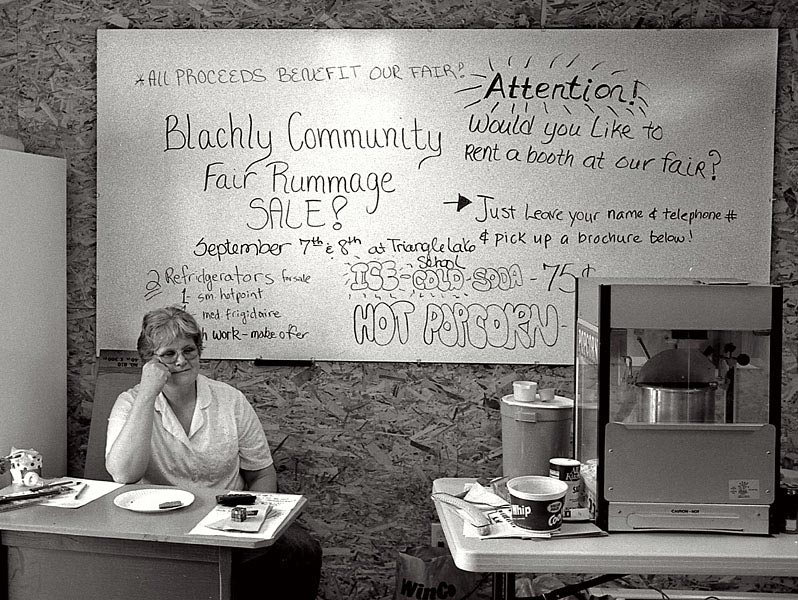 *ALL PROCEEDS BENEFIT OUR FAIR!
Blachly Community
Fair Rummage
SALE!
September 7th & 8th at Triangle Lake
School
2 Refridgerators for sale
1- sm. hotpoint
med. frigidaire
work - make offer
Attention!
Would you Like to
Rent a booth at our fair?
Just leave your name & telephone #
& pick up a brochure below!
ISE-COLD-SODA - 75¢
HOT POPCORN-
Whip
Coo
WinCo
CAUTION - HOT